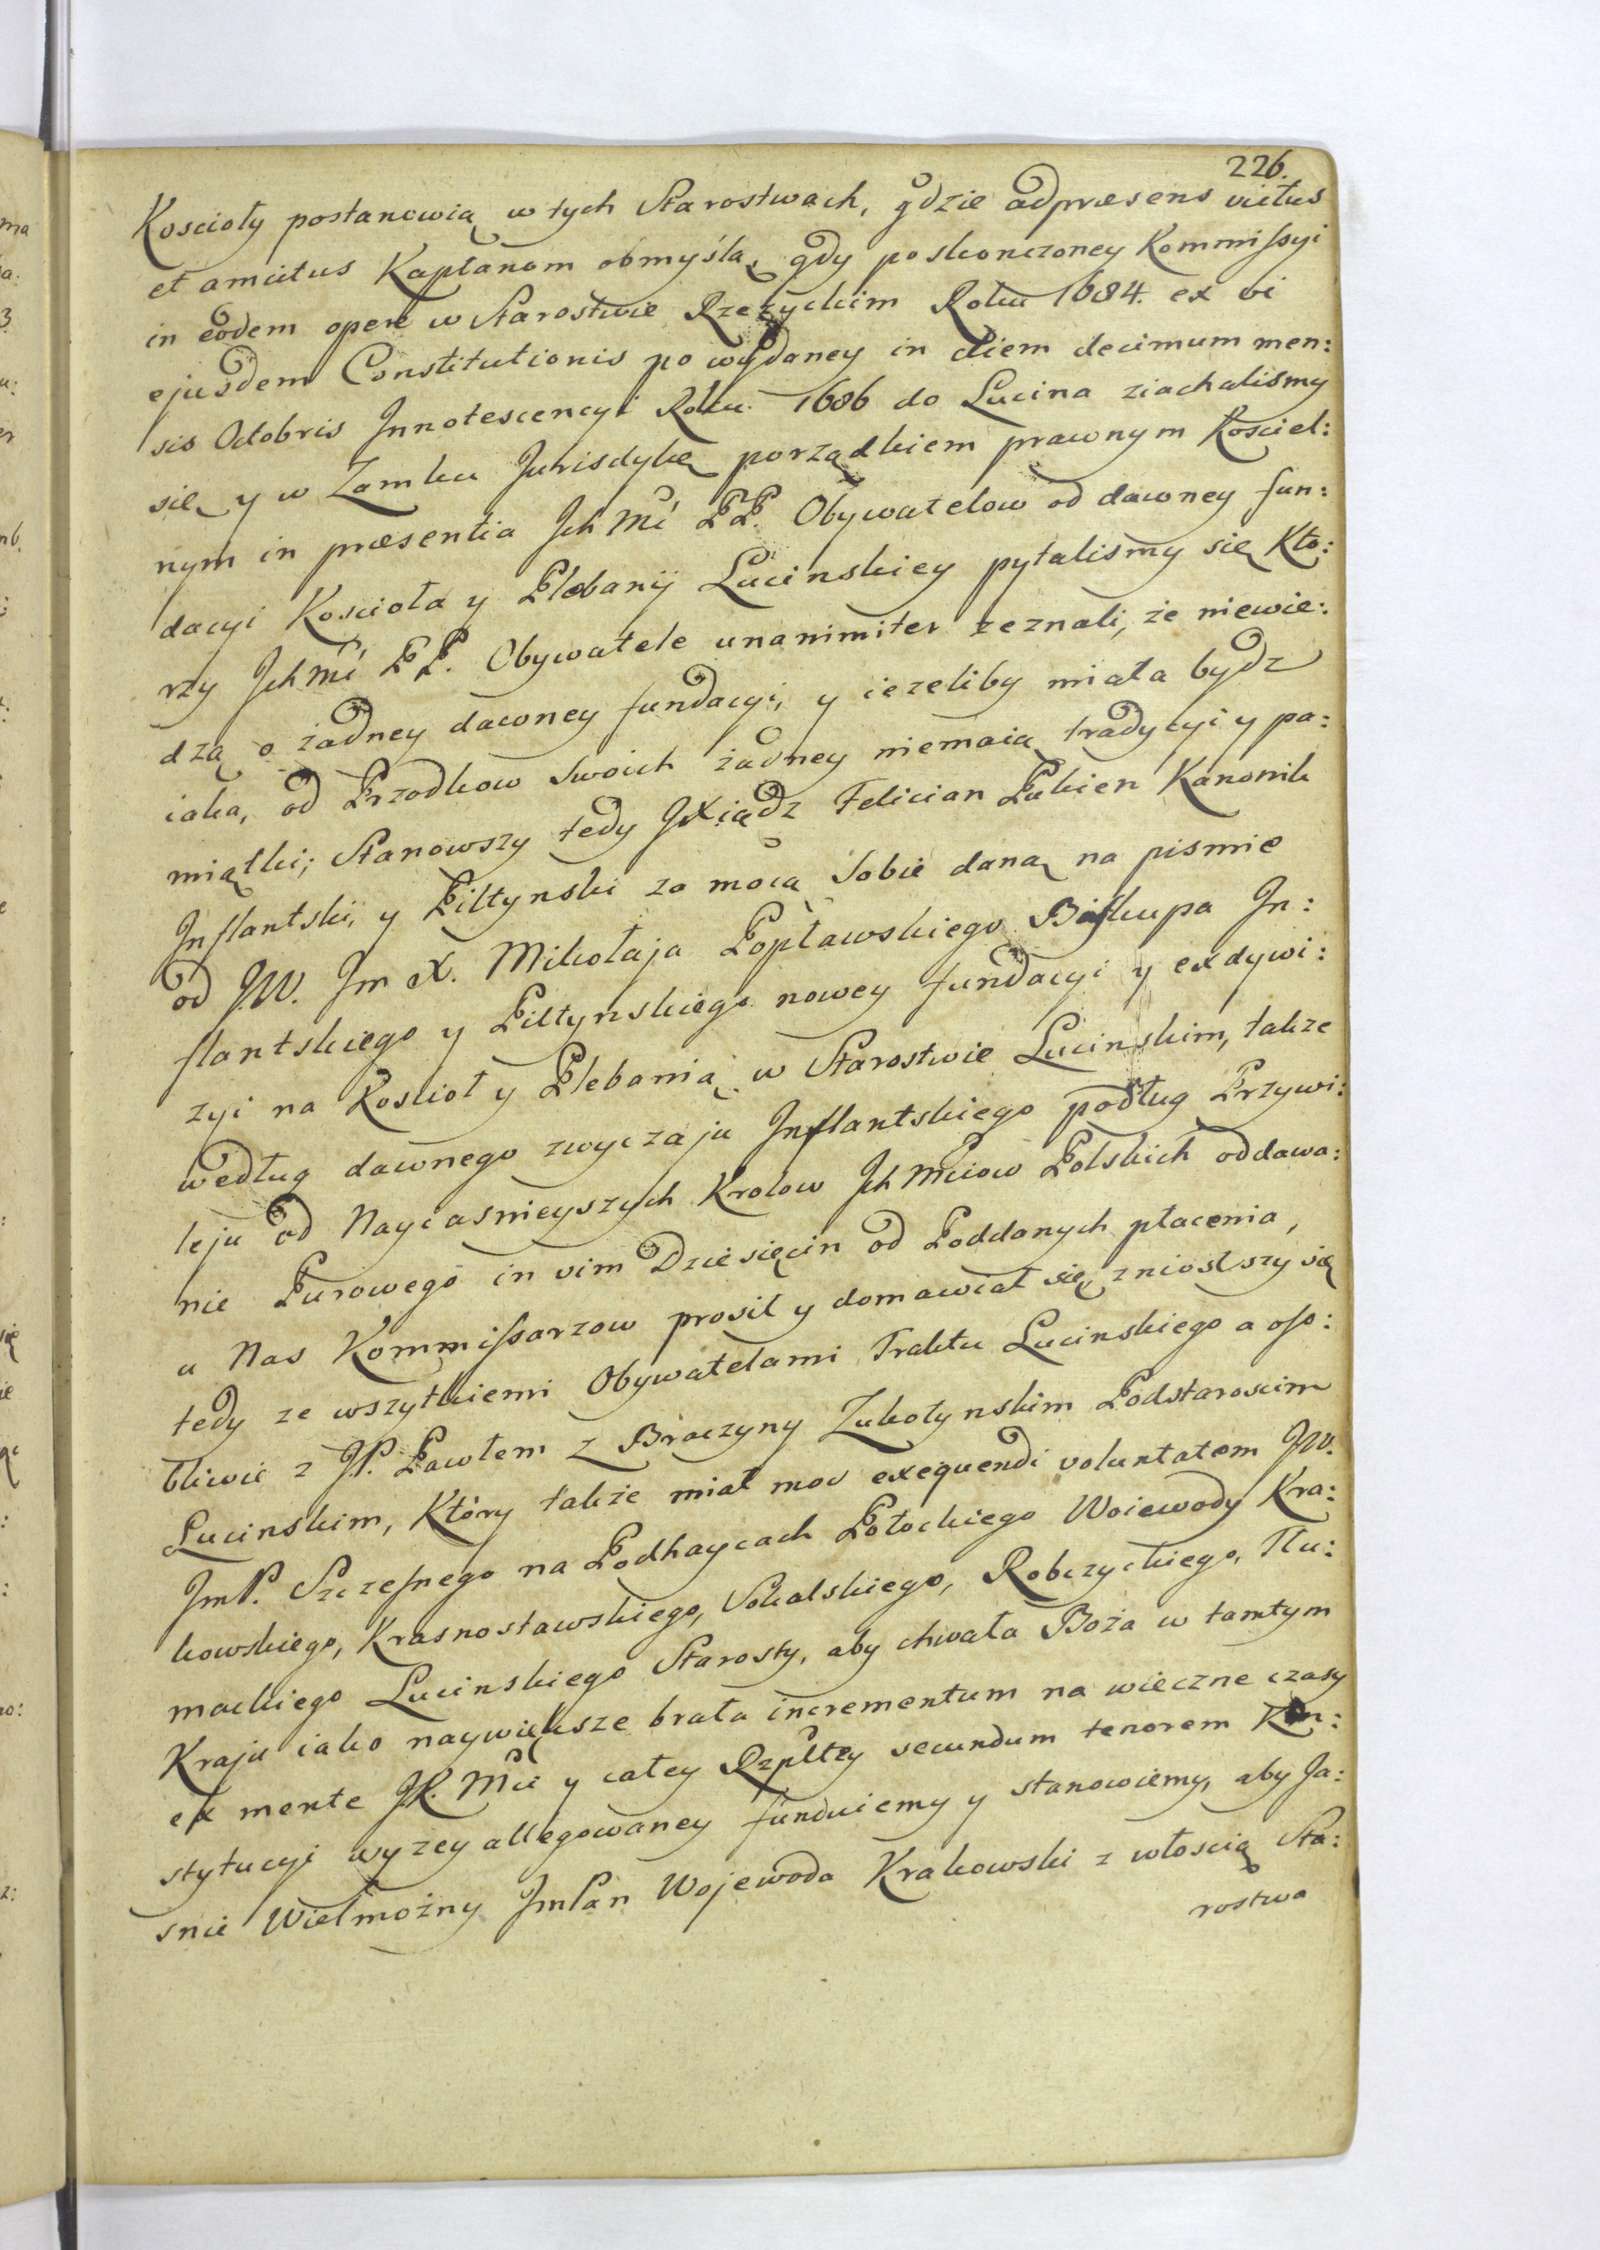 226.
Kościoły postanowią w tych Starostwach, gdzie adpræsens victus
et amictus Kapłanom obmyślą, gdy po skonczoney Kommissyi
in eodem opere w Starostwie Rzezyckim Roku 1684. ex vi
ejusdem Constitutionis po wydaney in diem decimum men:
sis Octobris Innotescencyi Roku 1686 do Lucina ziachalismy
się y w Zamku Jurisdykę porządkiem prawnym Kosciel:
nym in præsentia Ich Mć PP. Obywatelow od dawney fun:
dacyi Kościoła y Plebanij Lucinskiey pytalismy się Kto:
rzy Ich Mć PP. Obywatele unanimiter zeznali, że niewie:
dzą o żadney dawney fundacyi, y iezeliby miała bydz
iaka, od Przodkow Swoich żadney niemaią tradycyi y pa:
miątki; Stanowszy tedy JXiądz Felician Pukien Kanonik
Inflantski, y Piltynski za mocą Sobie daną na pismie
od JW. Jm X. Mikołaja Popławskiego Biskupa In:
flantskiego y Piltynskiego nowey fundacyi y exdywi:
zyi na Kościoł y Plebanią w Starostwie Lucinskim, takze
według dawnego zwyczaju Inflantskiego podług Przywi:
leju od Nayiasnieyszych Krolow Ich Mciow Polskich oddawa:
nie Purowego in vim Dziesięcin od Poddanych płacenia,
u Nas Kommissarzow prosił y domawiał się, zniosłszy się
tedy ze wszytkiemi Obywatelami Traktu Lucinskiego a oso:
bliwie z JP. Pawłem z Braczyny Zukotynskim Podstaroscim
Lucinskim, Który także miał moc exequendi voluntatem JW.
JmP. Szczesnego na Podhaycach Potockiego Woiewody Kra:
kowskiego, Krasnostawskiego, Sokalskiego, Robczyckiego, Tłu:
mackiego Lucinskiego Starosty, aby chwała Boża w tamtym
Kraju iako naywiększe brała incrementum na wieczne czasy
ex mente JK. Mci y całey Rzpltey secundum tenorem Kon:
stytucyi wyzey allegowaney funduiemy y stanowiemy, aby Ja:
snie Wielmożny JmPan Wojewoda Krakowski z włością Sta:
rostwa